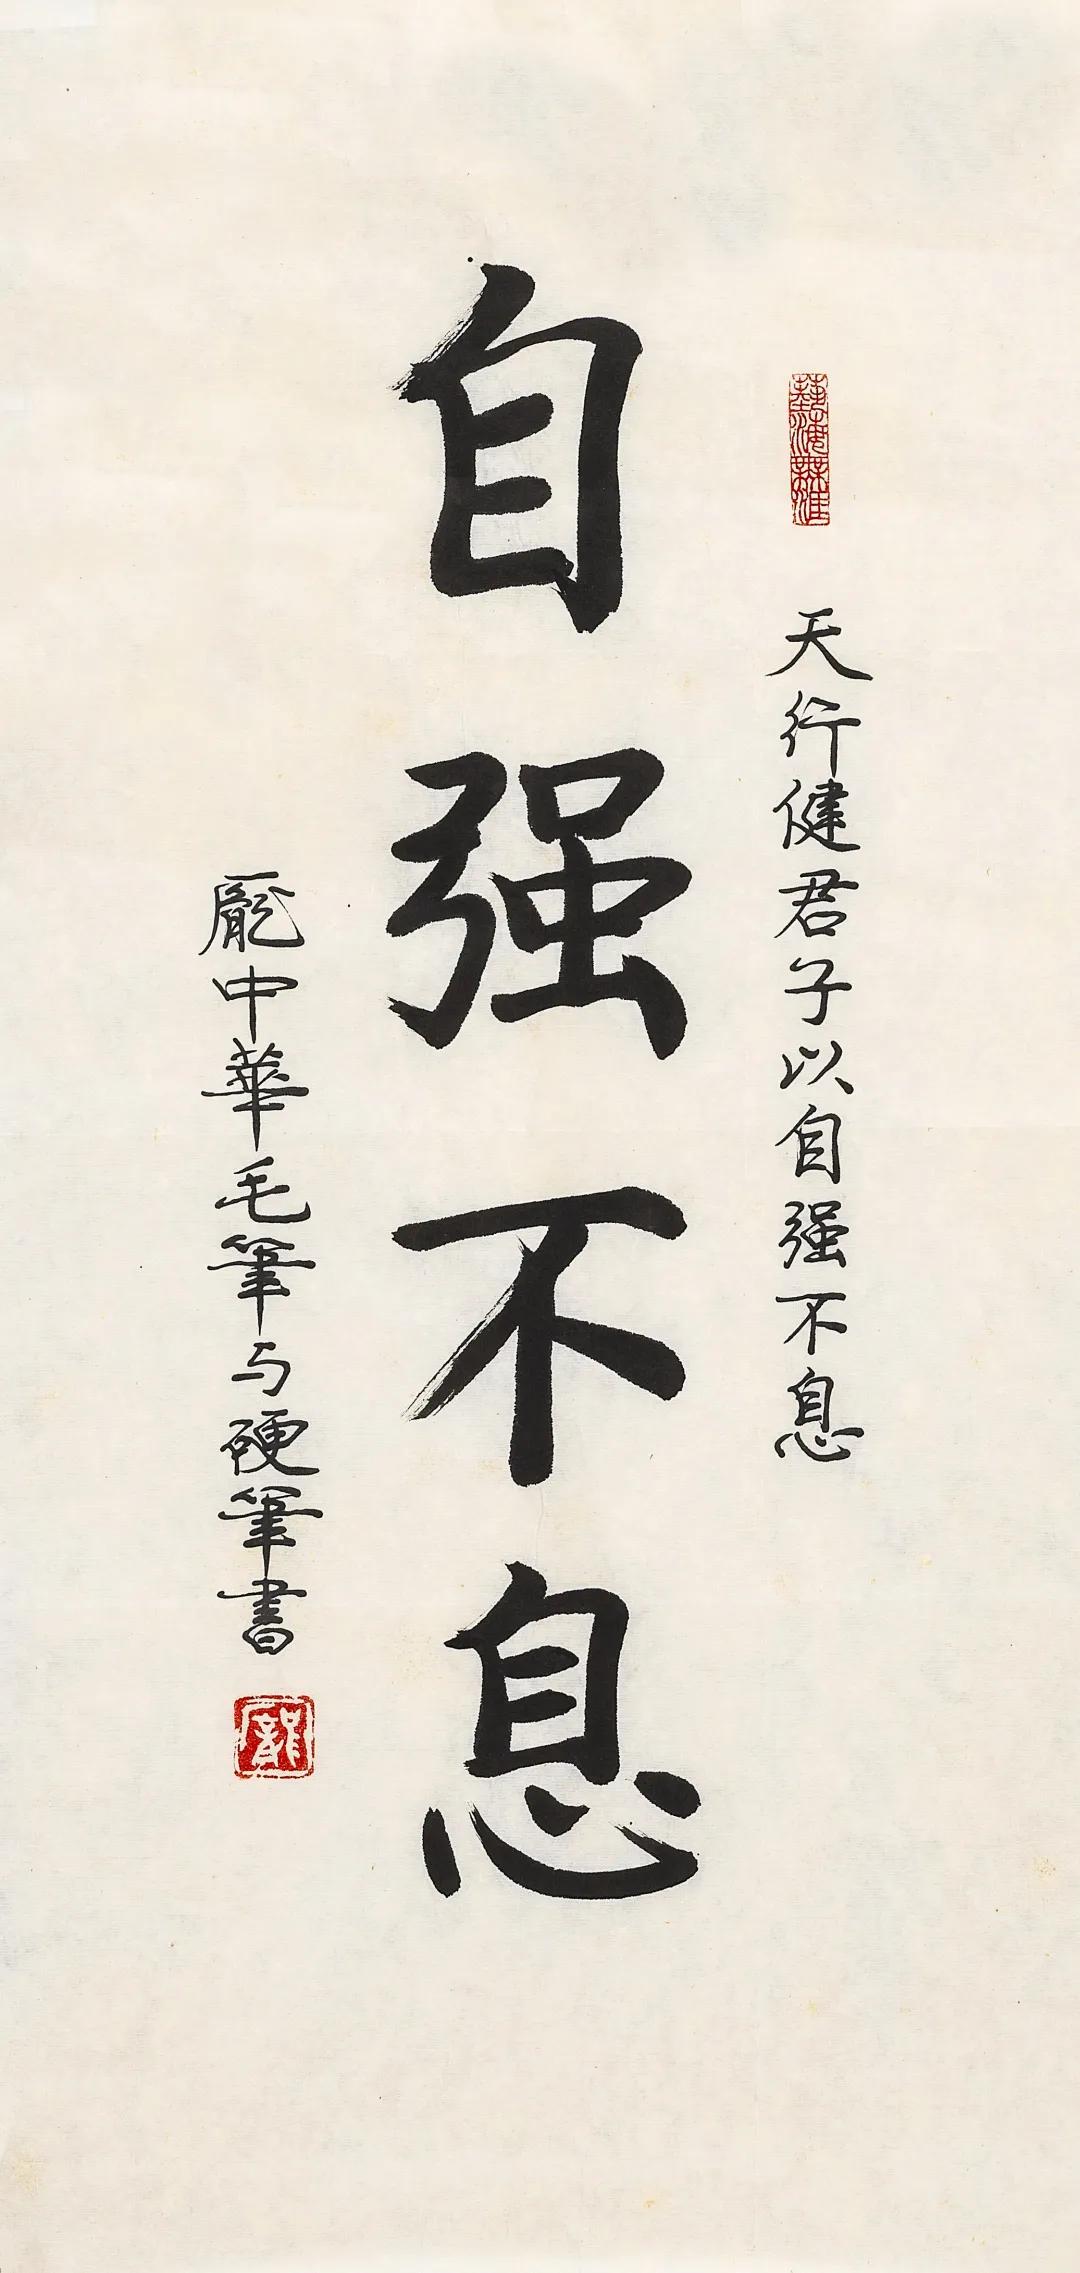 藝海無涯
天行健君子以自强不息
自强不息
龐中華毛筆与硬筆書
龐